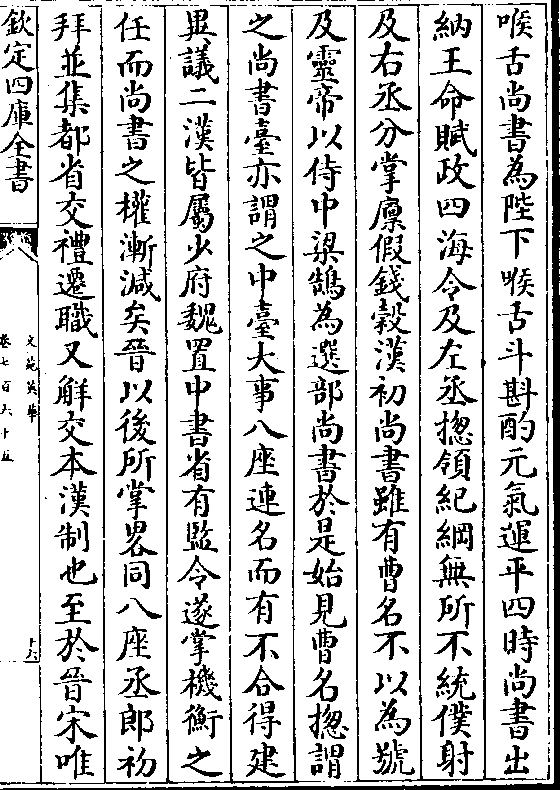 喉舌尚書為陛下喉舌斗斟酌元氣運平四時尚書出
納王命賦政四海令及左丞揔領紀綱無所不統僕射
及右丞分掌廪假錢穀漢初尚書雖有曹名不以為號
及靈帝以侍中梁鵠為選部尚書於是始見曹名揔謂
之尚書臺亦謂之中臺大事八座連名而有不合得建
異議二漢皆屬少府魏置中書省有監令遂掌機衡之
任而尚書之權漸減矣晉以後所掌畧同八座丞郎初
拜並集都省交禮遷職又解交本漢制也至於晉宋唯
欽定四庫全書
文苑英華
卷七百六十五
十六